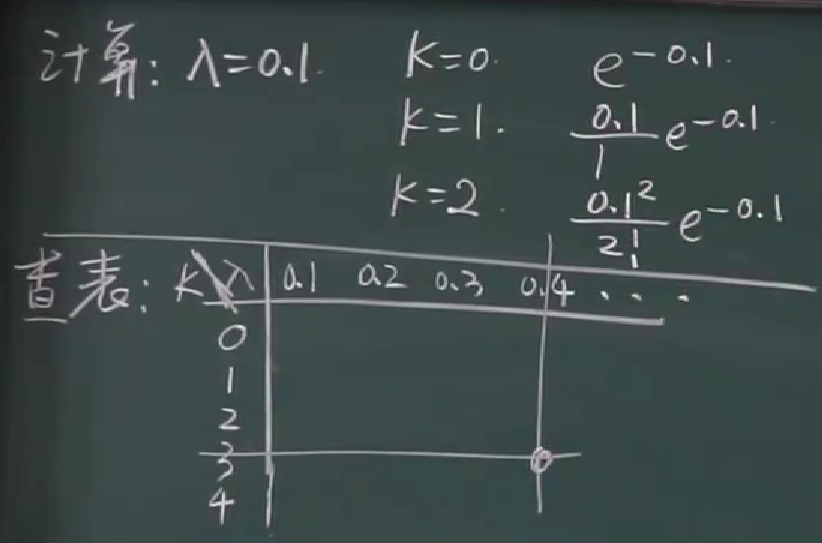 计算: λ=0.1. K=0. e^{-0.1}.
K=1. \frac{0.1}{1}e^{-0.1}.
K=2. \frac{0.1^2}{2!}e^{-0.1}
查表: K\λ 0.1 0.2 0.3 0.4 ...
0
1
2
3
4